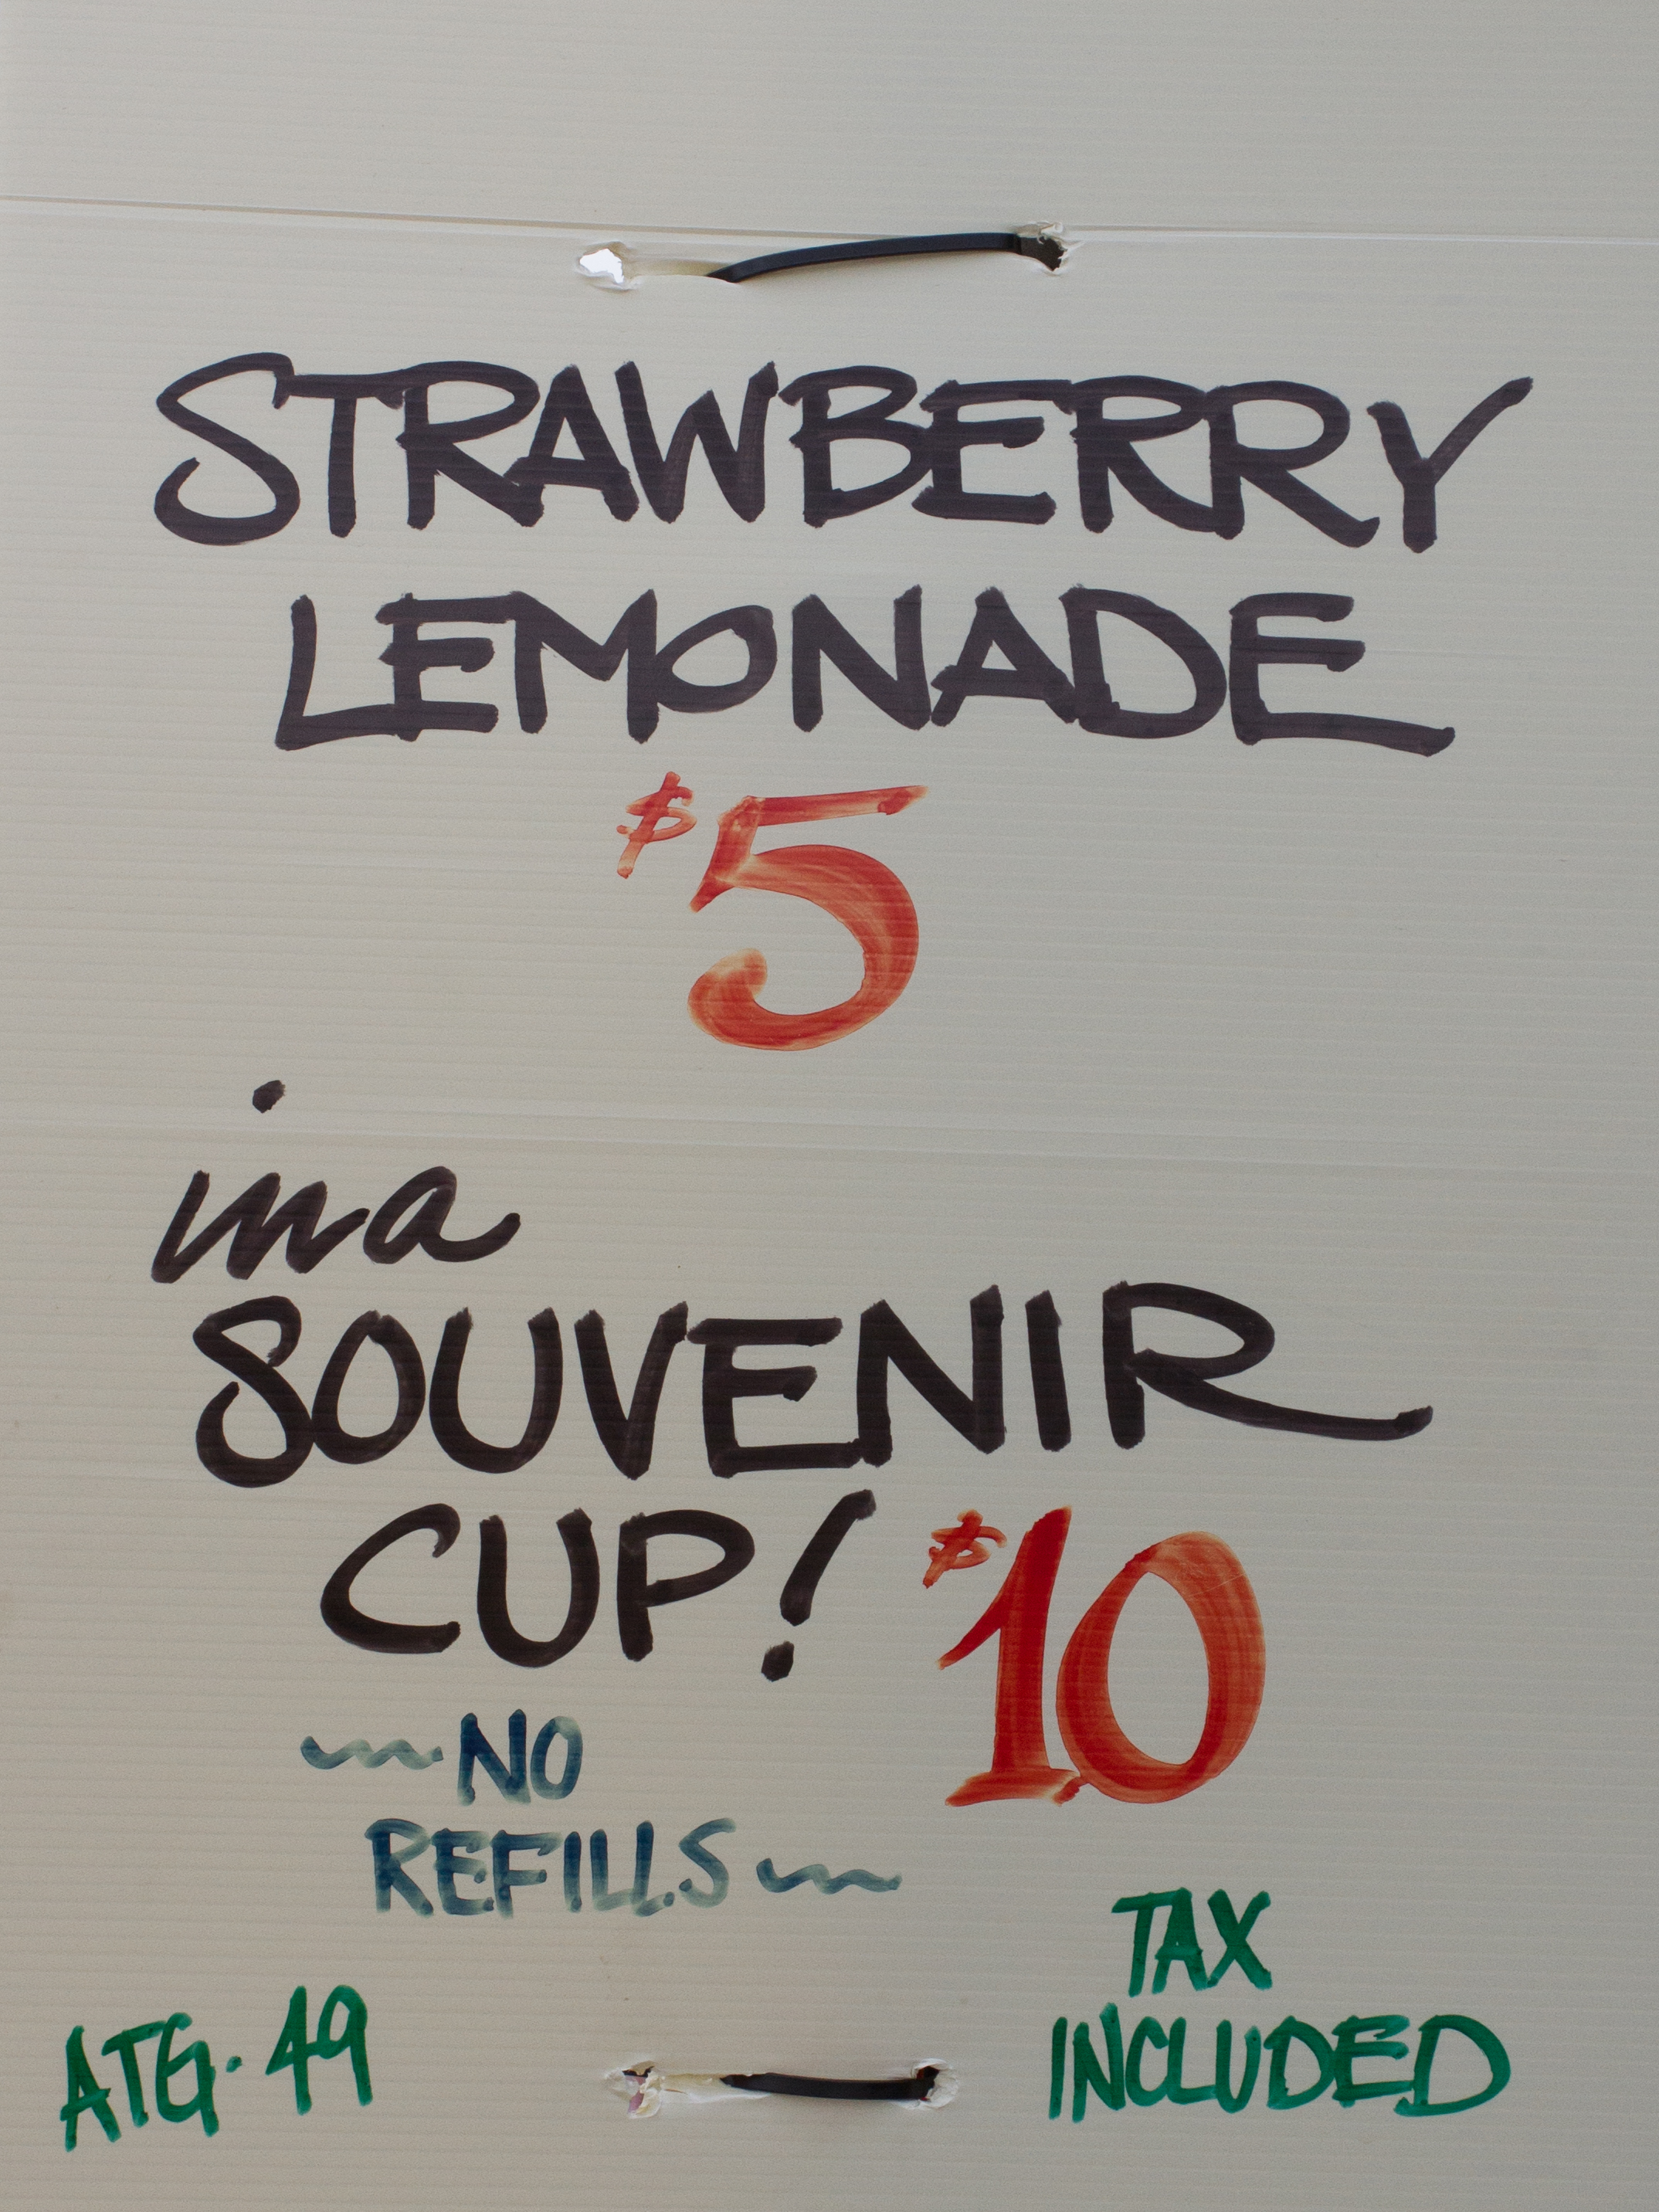 STRAWBERRY
LEMONADE
$5
in a
SOUVENIR
CUP! $10
~NO
REFILLS~
TAX
INCLUDED
ATG. 49